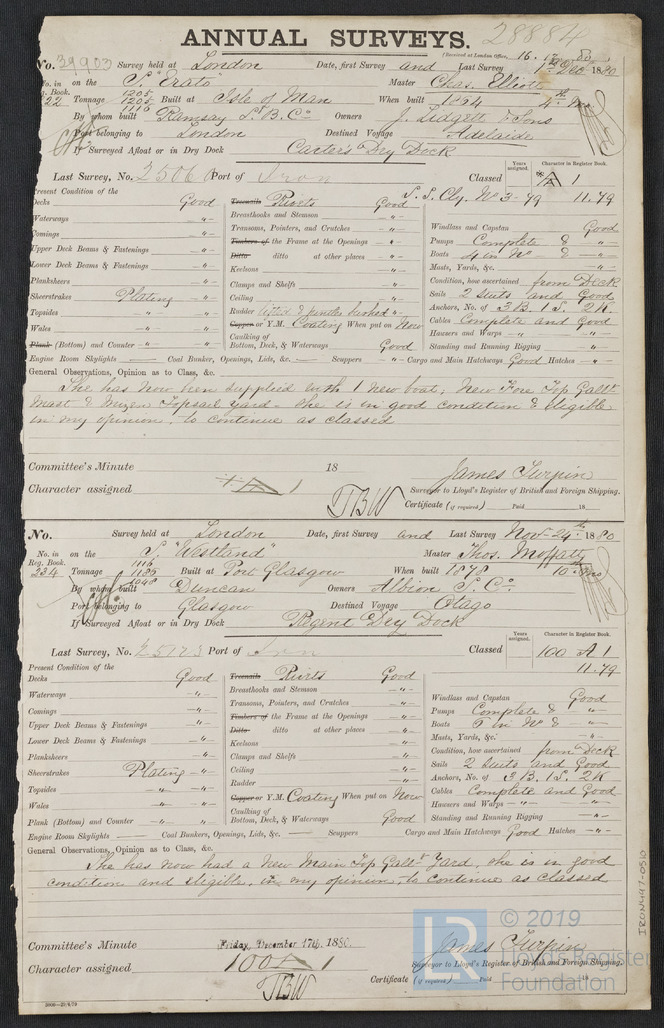 ANNUAL SURVEYS. 28884
(Received at London Office, 16. 12. 80
No. 39903 Survey held at London Date, first Survey and Last Survey Dec 1880
No. in on the S. "Erato" Master Chas. Elliott
Reg. Book. 1205
22 Tonnage 1205 Built at Isle of Man When built 1864 4th Mo
1116
By whom built Ramsay S. B. Co Owners J. Lidgett & Sons
Port belonging to London Destined Voyage Adelaide
If Surveyed Afloat or in Dry Dock Carter's Dry Dock
Years assigned. Character in Register Book.
Last Survey, No. 25060 Port of Iron Classed A 1
S. S. Cly. No 3-79 11.79
Present Condition of the
Decks Good Treenails Rivets Good
Waterways -"- Breasthooks and Stemson -"- Windlass and Capstan Good
Comings -"- Transoms, Pointers, and Crutches -"- Pumps Complete & -"-
Upper Deck Beams & Fastenings -"- Timbers of the Frame at the Openings -"- Boats 4 in No & -"-
Lower Deck Beams & Fastenings -"- Ditto ditto at other places -"- Masts, Yards, &c. -"-
Planksheers -"- Keelsons -"- Condition, how ascertained from Deck
Sheerstrakes Plating -"- Clamps and Shelfs -"- Sails 2 suits and Good
Topsides -"- Ceiling -"- Anchors, No. of 3 B. 1 S. 2 K.
Wales -"- Rudder lifted & pintles bushed -"- Cables Complete and Good
Plank (Bottom) and Counter -"- Copper or Y.M. Coating When put on Now Hawsers and Warps -"-
Caulking of Bottom, Deck, & Waterways Good Standing and Running Rigging -"-
Engine Room Skylights — Coal Bunker, Openings, Lids, &c. — Scuppers -"- Cargo and Main Hatchways Good Hatches -"-
General Observations, Opinion as to Class, &c.
She has now been supplied with 1 new boat; New Fore Top Gallt
Mast & Mizen Topsail yard. She is in good condition & eligible
in my opinion, to continue as classed
Committee's Minute 18 James Turpin
Character assigned A 1 Surveyor to Lloyd's Register of British and Foreign Shipping.
TBW Certificate (if required) Paid 18
No. Survey held at London Date, first Survey and Last Survey Nov. 24th 1880
No. in on the S. "Westland" Master Thos. Moffatt
Reg. Book. 1116
234 Tonnage 1185 Built at Port Glasgow When built 1878 10th Mo
1048
By whom built Duncan Owners Albion S. Co
Port belonging to Glasgow Destined Voyage Otago
If Surveyed Afloat or in Dry Dock Regent Dry Dock
Years assigned. Character in Register Book.
Last Survey, No. 25123 Port of Iron Classed 100 A 1
11.79
Present Condition of the
Decks Good Treenails Rivets Good
Waterways -"- Breasthooks and Stemson -"- Windlass and Capstan Good
Comings -"- Transoms, Pointers, and Crutches -"- Pumps Complete & -"-
Upper Deck Beams & Fastenings -"- Timbers of the Frame at the Openings -"- Boats 5 in No & -"-
Lower Deck Beams & Fastenings -"- Ditto ditto at other places -"- Masts, Yards, &c. -"-
Planksheers -"- Keelsons -"- Condition, how ascertained from Deck
Sheerstrakes Plating -"- Clamps and Shelfs -"- Sails 2 suits and Good
Topsides -"- -"- Ceiling -"- Anchors, No. of 3 B. 1 S. 2 K
Wales -"- -"- Rudder -"- Cables Complete and Good
Plank (Bottom) and Counter -"- -"- Copper or Y.M. Coating When put on Now Hawsers and Warps -"-
Caulking of Bottom, Deck, & Waterways Good Standing and Running Rigging -"-
Engine Room Skylights — Coal Bunkers, Openings, Lids, &c. — Scuppers Cargo and Main Hatchways Good Hatches -"-
General Observations, Opinion as to Class, &c.
She has now had a New Main Top Gallt Yard, she is in good
condition and eligible, in my opinion, to continue as classed
Committee's Minute Friday, December 17th, 1880. James Turpin
Character assigned 100 A 1 Surveyor to Lloyd's Register of British and Foreign Shipping.
TBW Certificate (if required) Paid 18
2000—21/4/79
IRON497-0510
LR © 2019
Lloyd's Register
Foundation